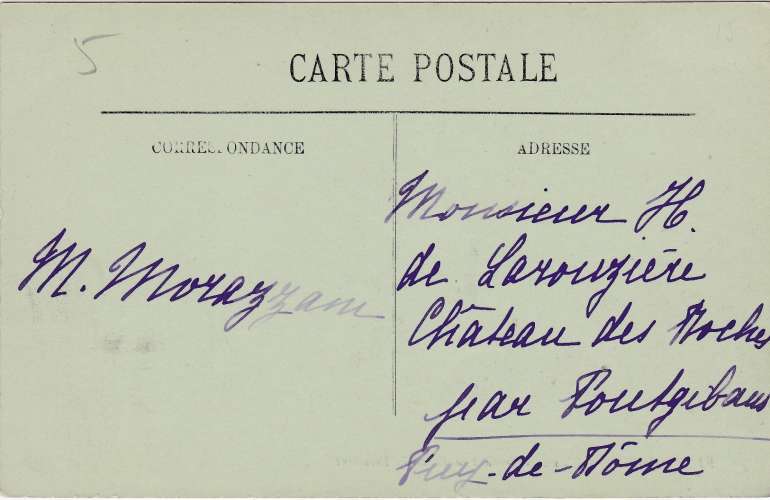 5
CARTE POSTALE
CORRESPONDANCE
ADRESSE
M. Morazzani
Monsieur H.
de Larouzière
Château des Roches
par Pontgibaud
Puy-de-Dôme